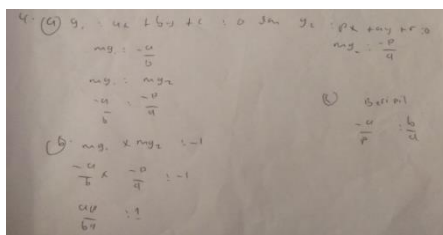 4. (a) y₁ : ax + by + c : 0 dan y₂ : px + qy + r : 0
my₁ : -a/b
my₂ : -p/q
my₁ : my₂
-a/b : -p/q
(b) my₁ x my₂ : -1
-a/b x -p/q : -1
ap/bq : 1
-a/p : b/q